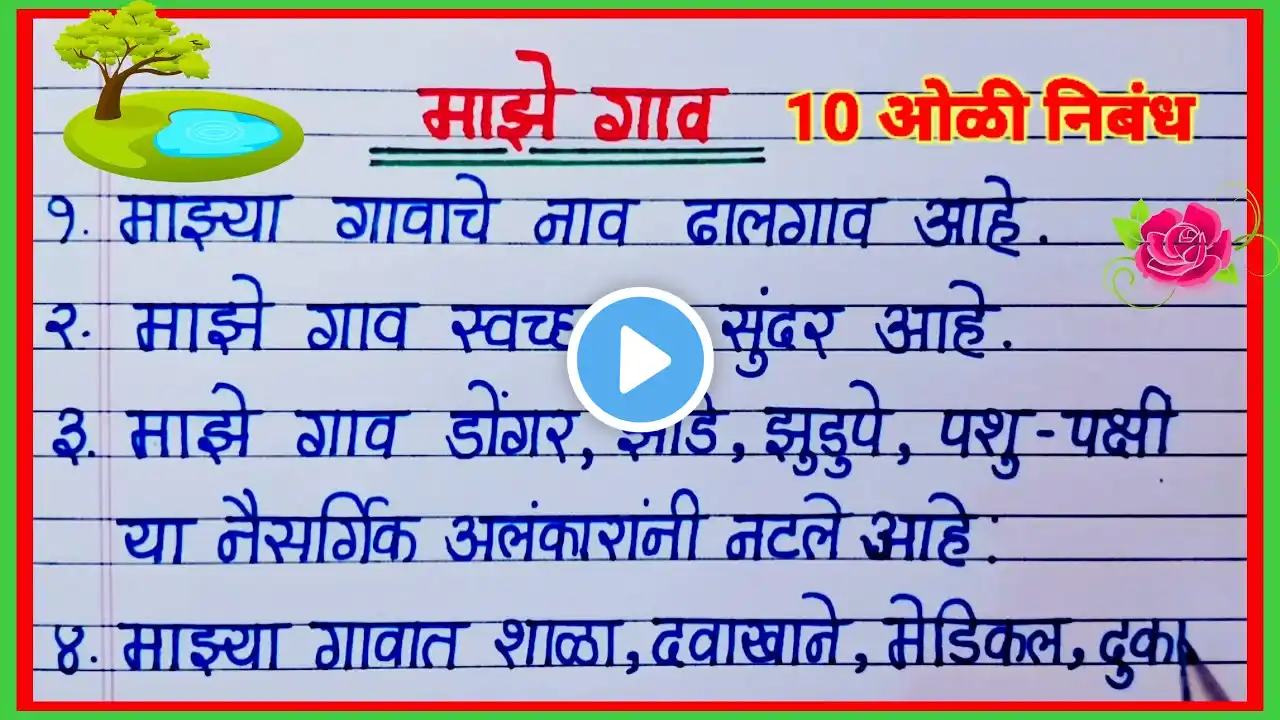 माझे गाव
10 ओळी निबंध
१. माझ्या गावाचे नाव ढालगाव आहे.
२. माझे गाव स्वच्छ सुंदर आहे.
३. माझे गाव डोंगर, झाडे, झुडुपे, पशु-पक्षी
या नैसर्गिक अलंकारांनी नटले आहे.
४. माझ्या गावात शाळा, दवाखाने, मेडिकल, दुका